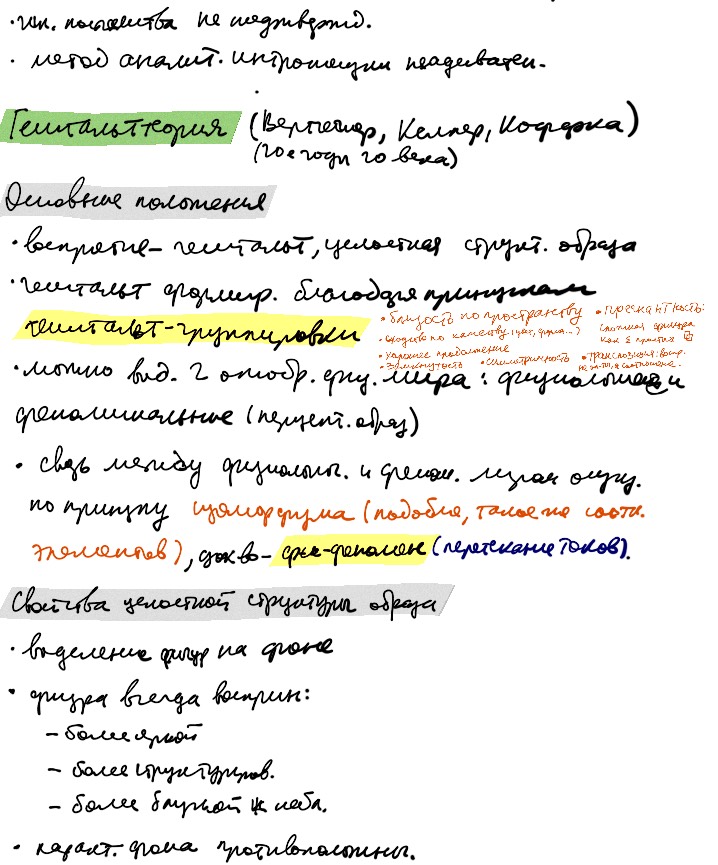 • гип. постоянства не подтвержд.
• метод аналит. интроспекции неадекватен.
Гештальттеория (Вертгеймер, Келлер, Коффка)
(20е годы 20 века)
Основные положения
• восприятие – гештальт, целостная структ. образа
• гештальт формир. благодаря принципам
гештальт-группировки
• близость по пространству
• сходство по качеству (цвет, форма...)
• хорошее продолжение
• замкнутость • симметричность
• прегнантность:
сложная фигура
как 2 простые
• транспозиция: воспр.
не эл-ты, а соотношение.
• можно выд. 2 отобр. физ. мира: физиологич. и
феноменальные (перцепт. образ)
• связь между физиологич. и феном. миром осущ.
по принципу изоморфизма (подобия, такое же соотн.
элементов), док-во – фи-феномен (перетекание токов).
Свойства целостной структуры образа
• выделение фигур на фоне
• фигура всегда восприн:
– более яркой
– более структуриров.
– более близкой к набл.
• характ. фона противоположны.